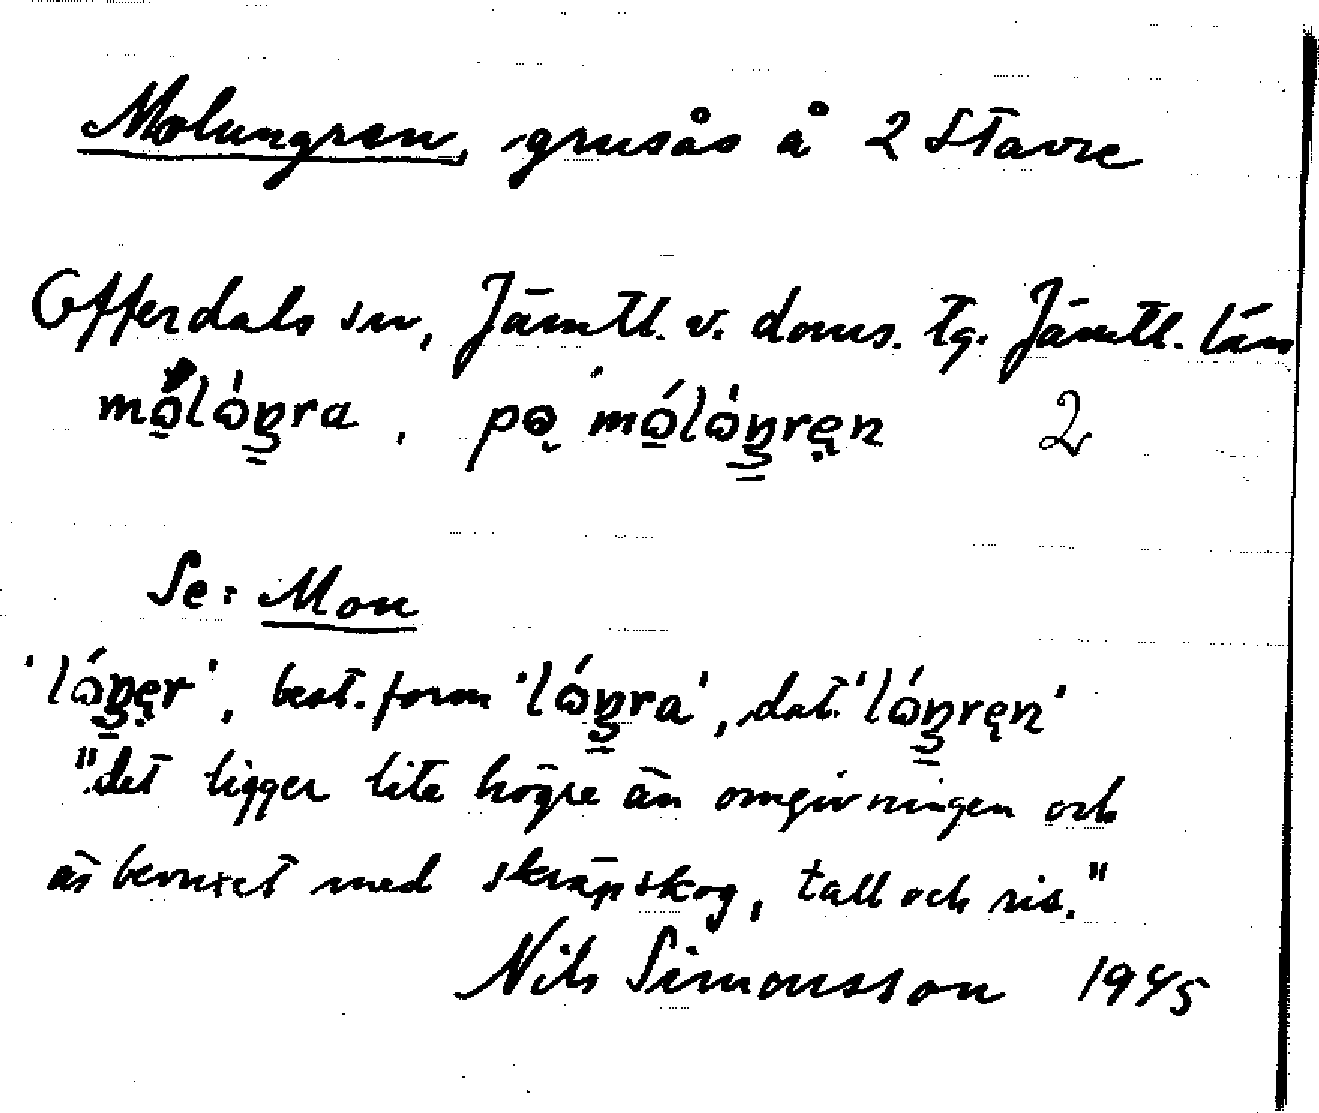 Molungren, grusås å 2 Stavre
Offerdals sn, Jämtl. v. doms. tg. Jämtl. län
mó̱lóŋra, pɷ mó̱lóŋręn 2
Se: Mon
'lóŋęr', best. form 'lóŋra', dat. 'lóŋręn'
"det ligger lite högre än omgivningen och
är bevuxet med skräpskog, tall och ris."
Nils Simonsson 1945